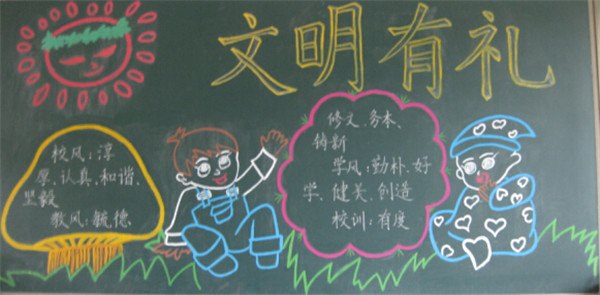 文明有礼
校风：淳
厚、认真、和谐、
坚毅
教风：毓德、
修文、务本、
铸新
学风：勤朴、好
学、健美、创造
校训：有度